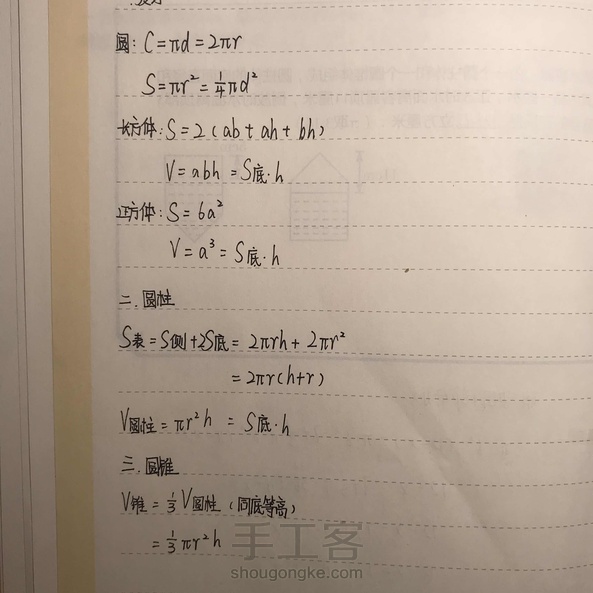 圆: C=πd=2πr
S=πr²=¼πd²
长方体: S=2(ab+ah+bh)
V=abh=S底·h
正方体: S=6a²
V=a³=S底·h
二.圆柱
S表=S侧+2S底=2πrh+2πr²
=2πr(h+r)
V圆柱=πr²h=S底·h
三.圆锥
V锥=⅓V圆柱(同底等高)
=⅓πr²h
手工客
shougongke.com